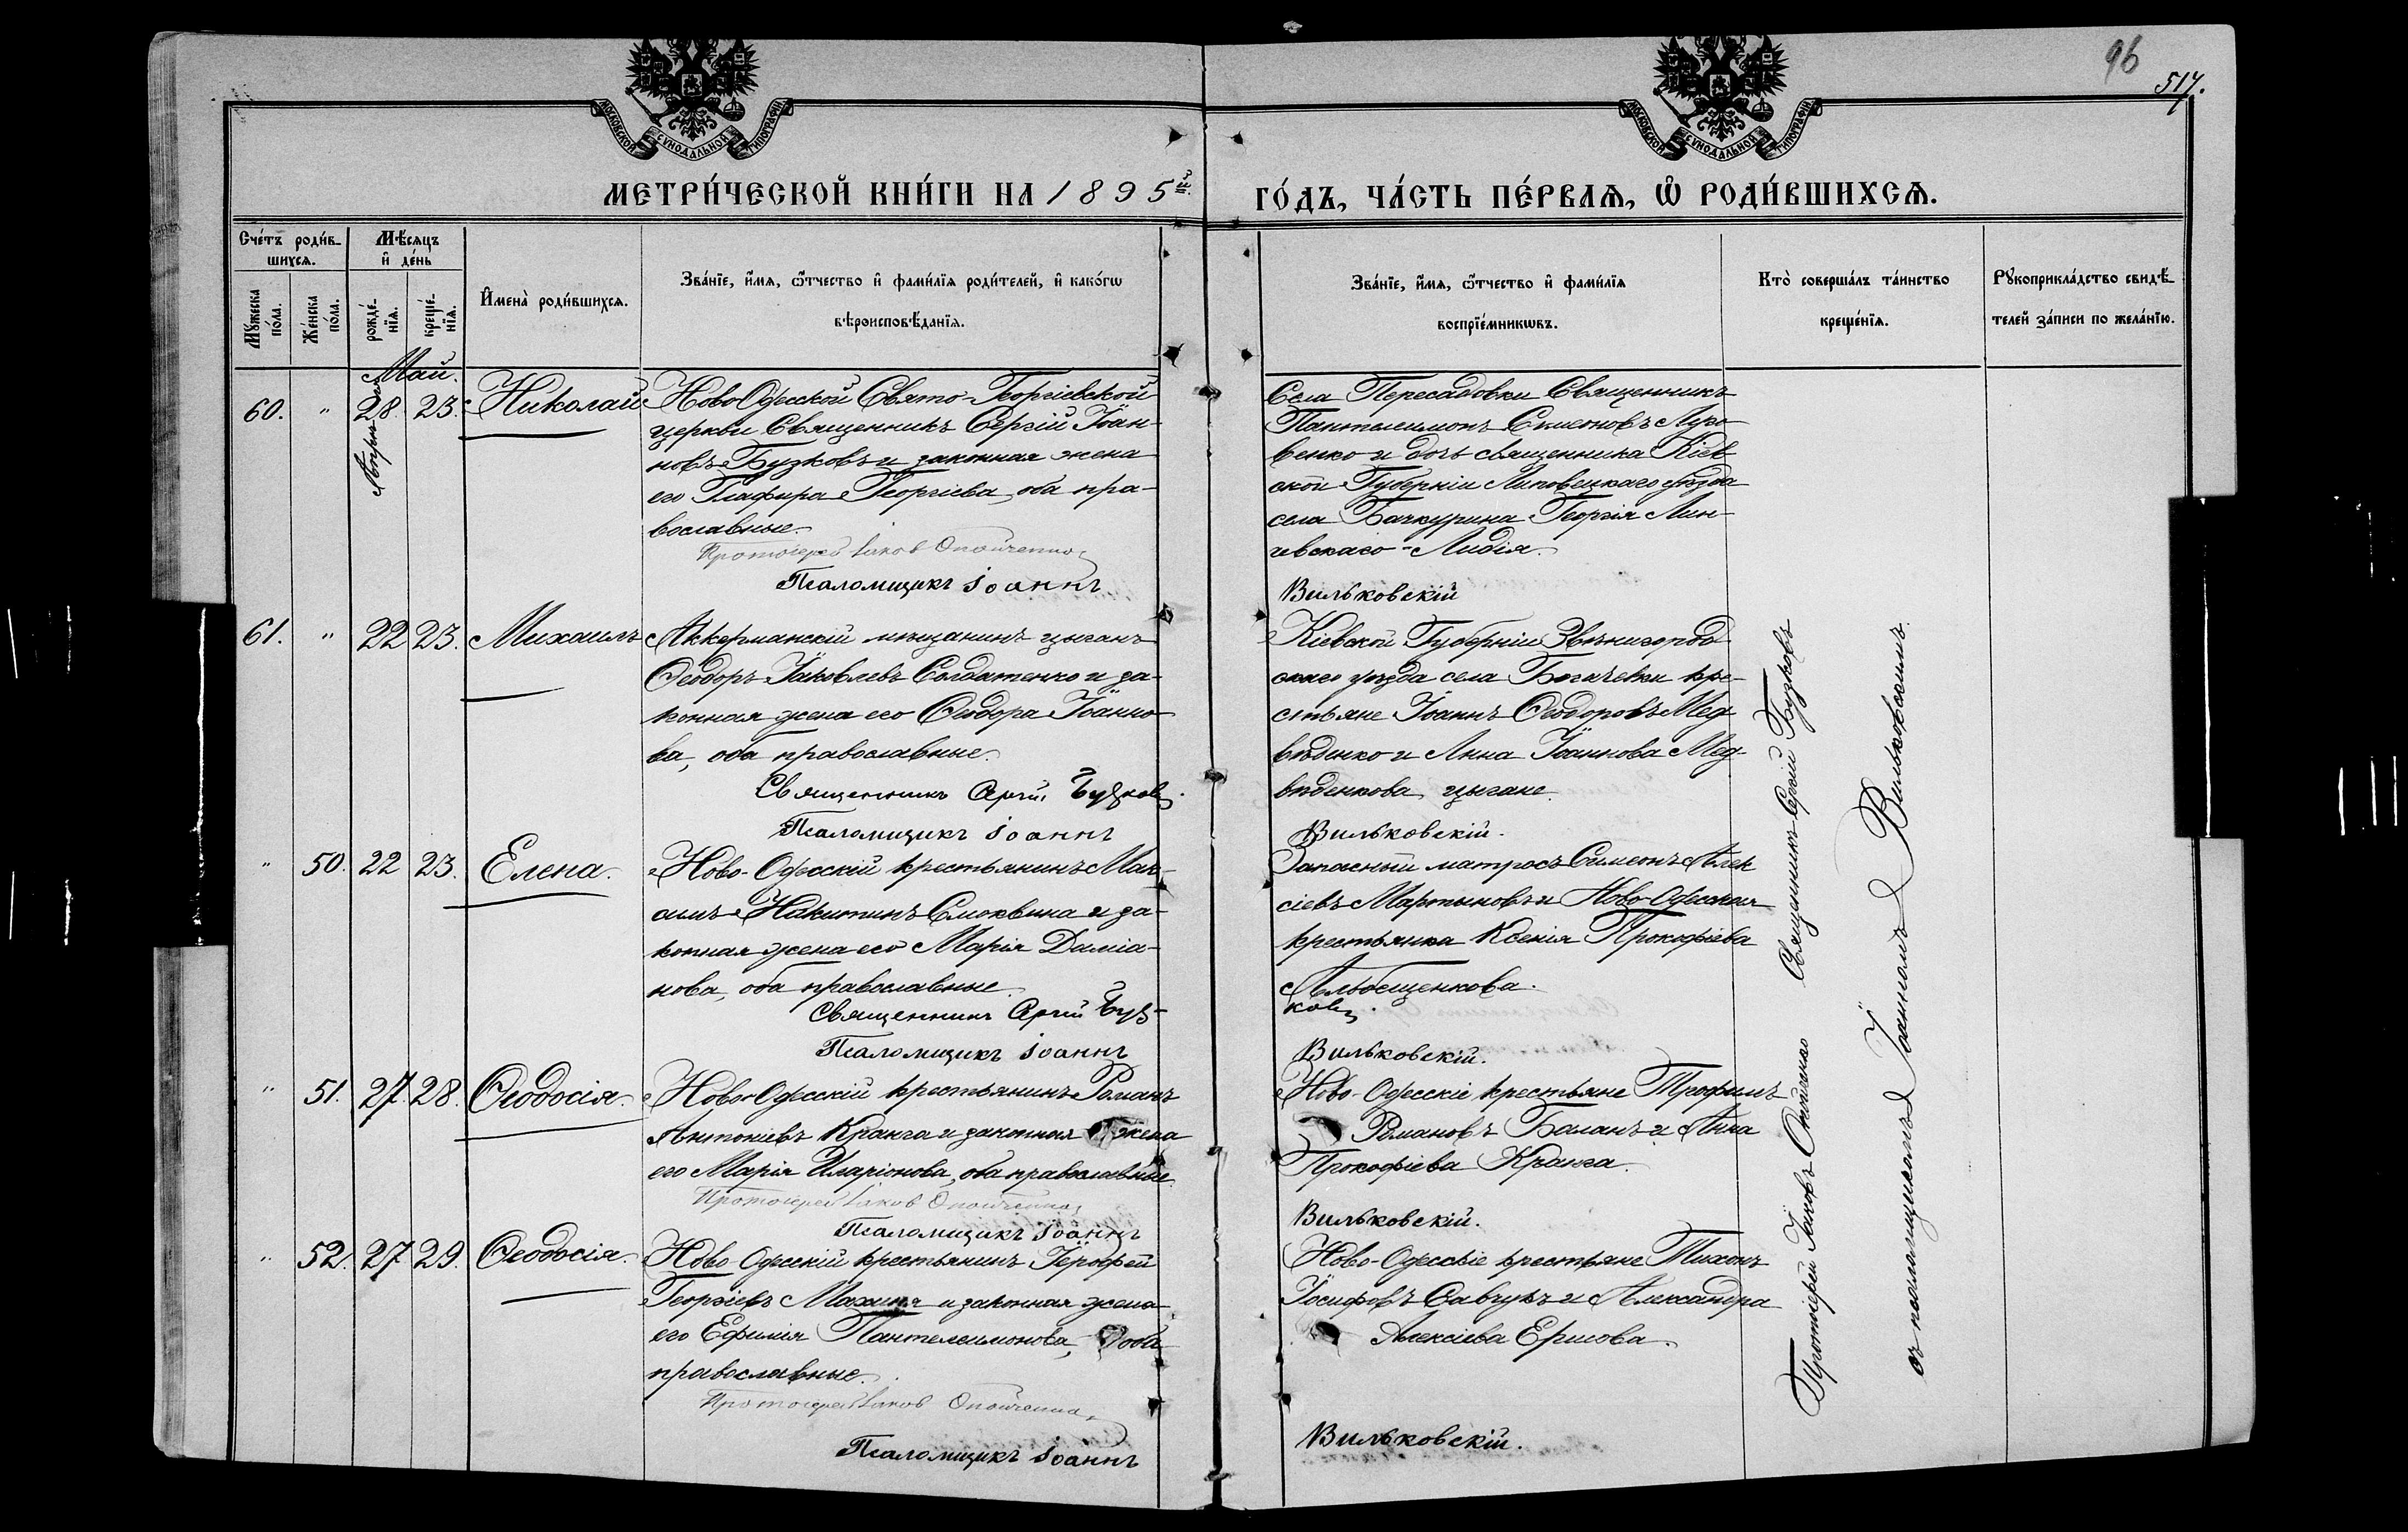 96
517.
МОСКОВСКОЙ СѴНОДАЛЬНОЙ ТИПОГРАФІИ
МОСКОВСКОЙ СѴНОДАЛЬНОЙ ТИПОГРАФІИ
МЕТРИ́ЧЕСКОЙ КНИ́ГИ НА 1895й ГО́ДЪ, ЧА́СТЬ ПЕ́РВАѦ, Ѽ РОДИ́ВШИХСѦ.
Сче́тъ роди́вшихсѧ.
Мꙋ́жеска по́ла.
Же́нска по́ла.
Мѣ́сѧцъ и҆ де́нь
рожде́нїѧ.
креще́нїѧ.
И҆мена̀ роди́вшихсѧ.
Зва́нїе, и҆́мѧ, ѻ҆́тчество и҆ фами́лїѧ роди́телей, и҆ како́гѡ
вѣроисповѣ́данїѧ.
Зва́нїе, и҆́мѧ, ѻ҆́тчество и҆ фами́лїѧ
воспрїе́мникѡвъ.
Кто̀ соверша́лъ та́инство
креще́нїѧ.
Рꙋкоприкла́дство свидѣ́-
телей за́писи по жела́нїю.
Май.
60. " 28. 23. Николай
Апрѣля
НовоОдесской Свято-Георгіевской
церкви Священникъ Сергій Іоан-
новъ Бузковъ и законная жена
его Глафира Георгіева, оба пра-
вославные.
Протоіерей Іаковъ Опойченко
Псаломщикъ Іоаннъ
Села Пересадовки Священникъ
Пантелеимонъ Симеоновъ Луго-
венко и дочь священника Кіев
ской Губерніи Липовецкаго уѣзда
села Бачкурина Георгія Лин-
чевскаго - Лидія.
Вильковскій
61. " 22 23. Михаилъ
Аккерманскій мѣщанинъ цыганъ
Ѳеодоръ Іаковлевъ Солдатенко и за-
конная жена его Ѳеодора Іоанно-
ва, оба православные.
Священникъ Сергій Бузковъ.
Псаломщикъ Іоаннъ
Кіевской Губерніи Звенигород-
скаго уѣзда села Богачевки кре-
стьяне Іоаннъ Ѳеодоровъ Мед-
вѣденко и Анна Іоаннова Мед-
вѣденкова, цыгане.
Вильковскій.
" 50. 22 23. Елена.
Ново-Одесскій крестьянинъ Мак-
симъ Никитинъ Смоквина и за-
конная жена его Марія Даміа-
нова, оба православные.
Священникъ Сергій Буз-
Псаломщикъ Іоаннъ
Запасный матросъ Симеонъ Алек
сіевъ Мартыновъ и Ново-Одесская
крестьянка Ксенія Прокофіева
ковъ.
Вильковскій.
" 51. 27. 28. Ѳеодосія.
Ново-Одесскій крестьянинъ Романъ
Антоніевъ Кранга и законная жена
его Марія Иларіонова, оба православные.
Протоіерей Іаковъ Опойченко
Псаломщикъ Іоаннъ
Ново-Одесскіе крестьяне Трофимъ
Романовъ Баланъ и Анна
Прокофіева Кранга.
Вильковскій.
" 52. 27 29. Ѳеодосія.
Ново-Одесскій крестьянинъ Іерофей
Георгіевъ Махиня и законная жена
его Ефимія Пантелеимонова, оба
православные.
Протоіерей Іаковъ Опойченко
Псаломщикъ Іоаннъ
Ново-Одесскіе крестьяне Тихонъ
Іосифовъ Савчукъ и Александра
Алексіева Ершова.
Вильковскій.
Протоіерей Іаковъ Опойченко Священникъ Сергій Бузковъ
съ псаломщикомъ Іоанномъ Вильковскимъ.